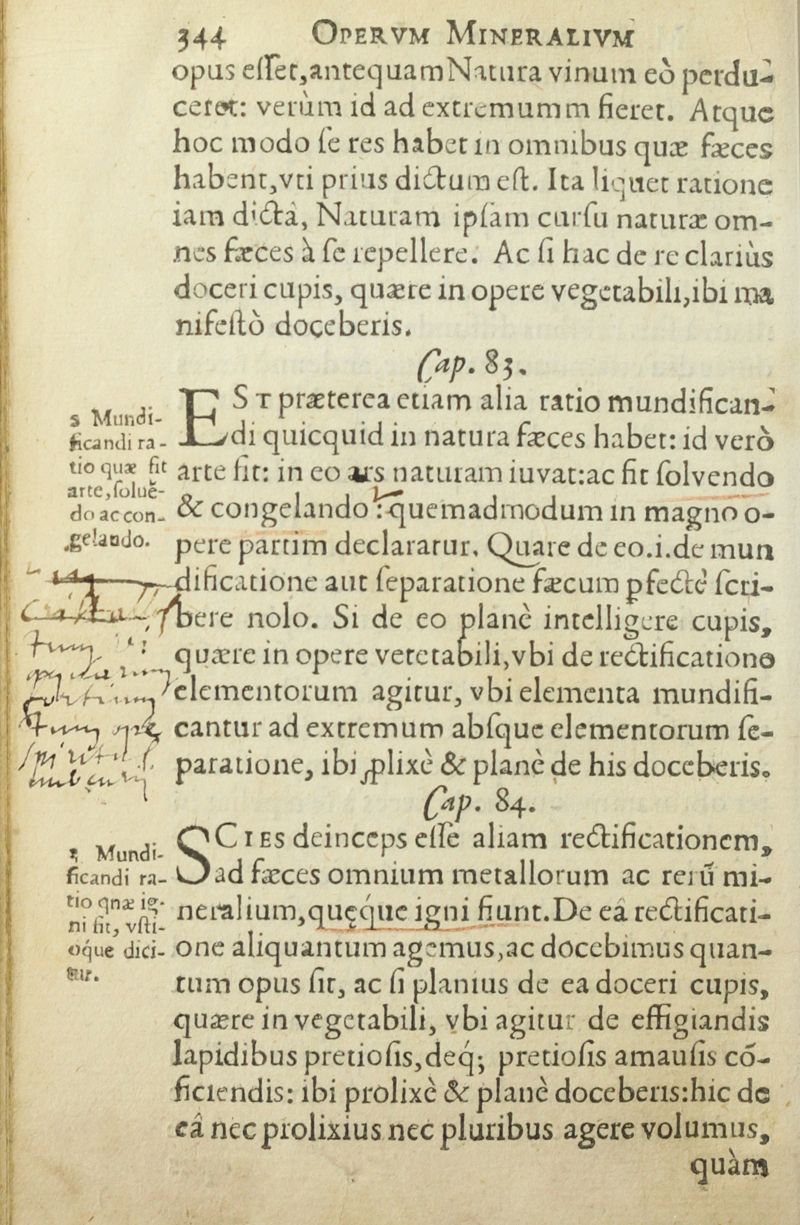 344 OPERVM MINERALIVM
opus eſſet,antequam Natura vinum eò perdu-
ceret: verùm id ad extremumm fieret. Atque
hoc modo ſe res habet in omnibus quæ fæces
habent,vti prius dictum eſt. Ita liquet ratione
iam dictâ, Naturam ipſam curſu naturæ om-
nes fæces à ſe repellere. Ac ſi hac de re clariùs
doceri cupis, quære in opere vegetabili,ibi ma
nifeſtò doceberis.
Cap. 83.
EST præterea etiam alia ratio mundifican-
di quicquid in natura fæces habet: id verò
arte fit: in eo ars naturam iuvat:ac fit ſolvendo
& congelando: quemadmodum in magno o-
pere partim declaratur. Quare de eo.i.de mun
dificatione aut ſeparatione fæcum pfectè ſcri-
bere nolo. Si de eo planè intelligere cupis,
quære in opere vetetabili,vbi de rectificatione
elementorum agitur, vbi elementa mundifi-
cantur ad extremum abſque elementorum ſe-
paratione, ibi ꝓlixè & planè de his doceberis.
5 Mundi-
ficandi ra-
tio quæ fit
arte,ſoluē-
do ac con-
gelando.
Cap. 84.
SCIES deinceps eſſe aliam rectificationem,
ad fæces omnium metallorum ac rerū mi-
neralium,quęque igni fiunt.De eâ rectificati-
one aliquantum agemus,ac docebimus quan-
tum opus ſit, ac ſi planius de ea doceri cupis,
quære in vegetabili, vbi agitur de effigiandis
lapidibus pretioſis,deq; pretioſis amauſis cō-
ficiendis: ibi prolixè & planè doceberis:hic de
eâ nec prolixius nec pluribus agere volumus,
quàm
Mundi-
ficandi ra-
tio qnæ ig-
ni fit, vſti-
oque dici-
tur.